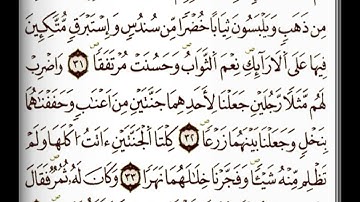 مِن ذَهَبٍ وَيَلْبَسُونَ ثِيَابًا خُضْرًا مِّن سُندُسٍ وَإِسْتَبْرَقٍ مُّتَّكِـِٔينَ
فِيهَا عَلَى ٱلْأَرَآئِكِ نِعْمَ ٱلثَّوَابُ وَحَسُنَتْ مُرْتَفَقًا ٣١ وَٱضْرِبْ
لَهُم مَّثَلًا رَّجُلَيْنِ جَعَلْنَا لِأَحَدِهِمَا جَنَّتَيْنِ مِنْ أَعْنَٰبٍ وَحَفَفْنَٰهُمَا
بِنَخْلٍ وَجَعَلْنَا بَيْنَهُمَا زَرْعًا ٣٢ كِلْتَا ٱلْجَنَّتَيْنِ ءَاتَتْ أُكُلَهَا وَلَمْ
تَظْلِم مِّنْهُ شَيْـًٔا وَفَجَّرْنَا خِلَٰلَهُمَا نَهَرًا ٣٣ وَكَانَ لَهُۥ ثَمَرٌ فَقَالَ